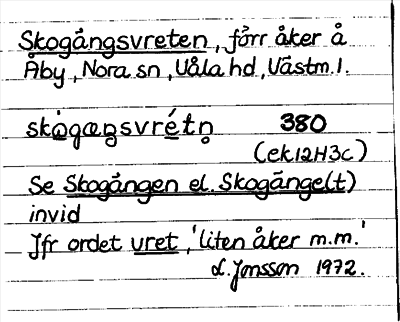 Skogångsvreten, förr åker å
Åby, Nora sn, Våla hd, Västm.l.
skògaŋsvrétn̥ 380
(ek12H3c)
Se Skogången el. Skogånge(t)
invid
Jfr ordet vret, 'liten åker m.m.'
L. Jonsson 1972.